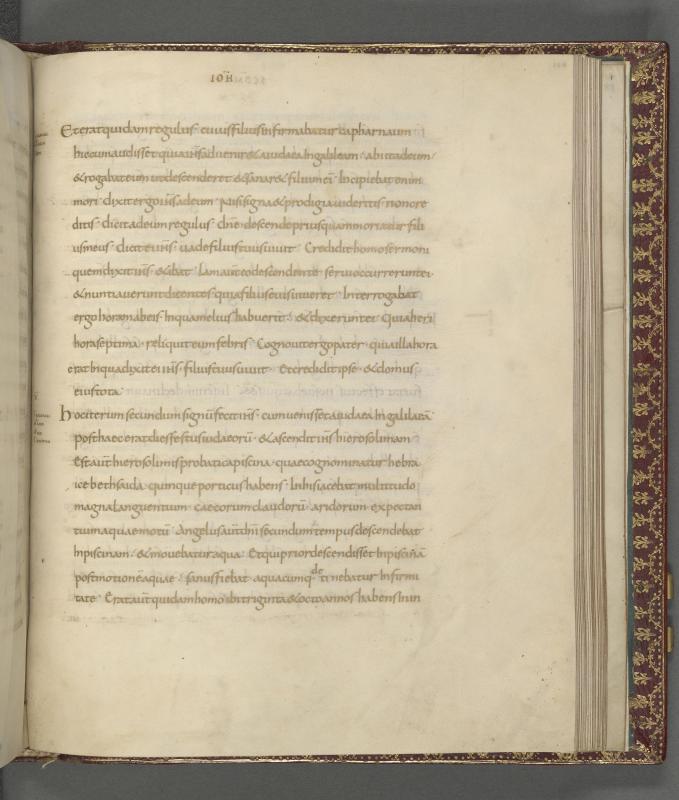 IOH̄
Et erat quidam regulus · cuius filius infirmabatur capharnaum
hic cum audisset quia ih̄s adueniret a iudaea In galileam · abiit ad eum ·
& rogabat eum ut descenderet & sanar& filium ei' Incipiebat enim
mori · dixit ergo ih̄s ad eum · Nisi signa & prodigia uideritis non cre
ditis · dicit ad eum regulus · dn̄e · descende priusquam moriatur fili
us meus · dicit ei ih̄s · uade filius tuus uiuit · Credidit homo sermoni
quem dixit ih̄s · & ibat · Iam aut̄ eo descendente · serui occurrerunt ei ·
& nuntiauerunt dicentes · quia filius tuus uiueret · Interrogabat
ergo horam ab eis · In qua melius habuerit · & dixerunt ei · Quia heri
hora septima · reliquit eum febris · Cognouit ergo pater · quia illa hora
erat In qua dixit ei ih̄s · filius tuus uiuit · Et credidit ipse · & domus
eius tota ·
hoc iterum secundum signū fecit ih̄s · cum uenisset a iudaea In galilaeā
post haec erat dies festus iudaeorū · & ascendit ih̄s hierosolimam
Est aut̄ hierosolimis probatica piscina · quae cognominatur hebra
ice bethsaida · quinque porticus habens · In his iacebat multitudo
magna languentium · caecorum claudorū · aridorum · expectan
tium aquae motū · Angelus aut̄ dn̄i secundum tempus descendebat
In piscinam · & mouebatur aqua · Et qui prior descendisset In piscinā
post motionē aquae · sanus fiebat · a quacumq· detinebatur Infirmi
tate · Erat aut̄ quidam homo ibi triginta & octo annos habens In in